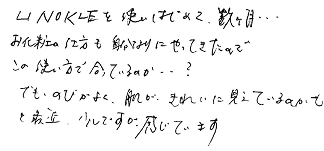 UNOKLEを使いはじめて、数ヶ月…
お化粧の仕方も自分なりにやってきたので
この使い方で合っているのか…?
でも、のびがよく、肌が、きれいに見えているのかも
と最近、少しですが感じています